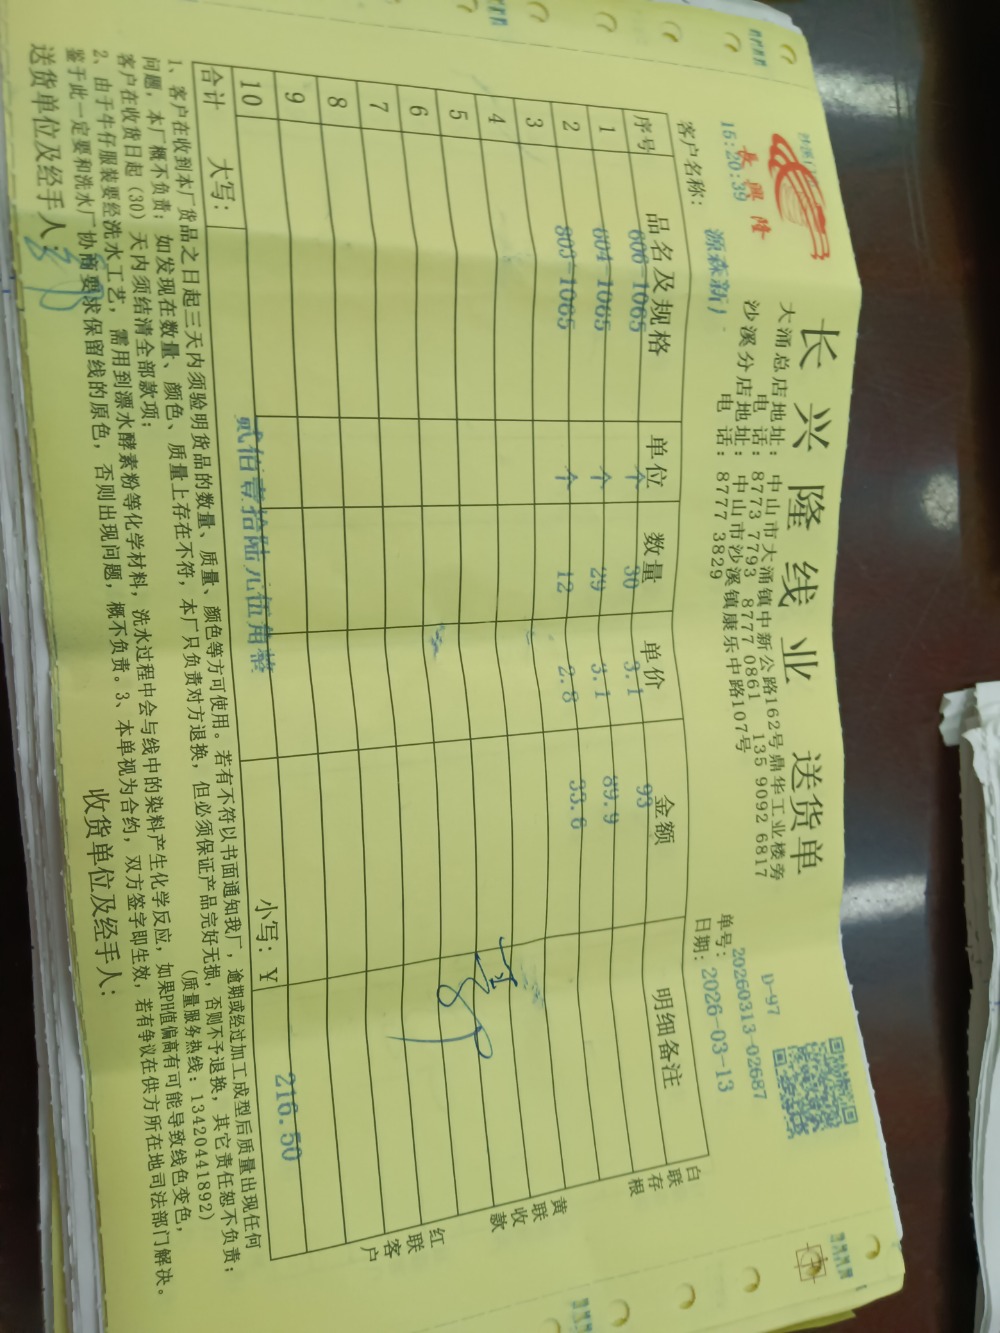 长兴隆线业 送货单
長興隆
15:20:39
大涌总店地址: 中山市大涌镇中新公路162号鼎华工业楼旁
电 话: 8773 7793 8777 0861 135 9092 6817
沙溪分店地址: 中山市沙溪镇康乐中路107号
电 话: 8777 3829
D-97
单号: 20260313-02687
日期: 2026-03-13
客户名称: 源森新
序号 品名及规格 单位 数量 单价 金额 明细备注
1 606-1065 个 30 3.1 93
2 604-1065 个 29 3.1 89.9
3 803-1065 个 12 2.8 33.6
4
5
6
7
8
9
10
合计 大写: 贰佰壹拾陆元伍角整 小写: ¥ 216.50
白联存根
黄联收款
红联客户
1、客户在收到本厂货品之日起三天内须验明货品的数量、质量、颜色等方可使用。若有不符以书面通知我厂, 逾期或经过加工成型后质量出现任何
问题, 本厂概不负责; 如发现在数量、颜色、质量上存在不符, 本厂只负责对方退换, 但必须保证产品完好无损, 否则不予退换, 其它责任恕不负责;
客户在收货日起(30)天内须结清全部款项; (质量服务热线: 13420441892)
2、由于牛仔服装要经洗水工艺, 需用到漂水酵素粉等化学材料, 洗水过程中会与线中的染料产生化学反应, 如果PH值偏高有可能导致线色变色,
鉴于此一定要和洗水厂协商要求保留线的原色, 否则出现问题, 概不负责。3、本单视为合约, 双方签字即生效, 若有争议在供方所在地司法部门解决。
送货单位及经手人: 收货单位及经手人: